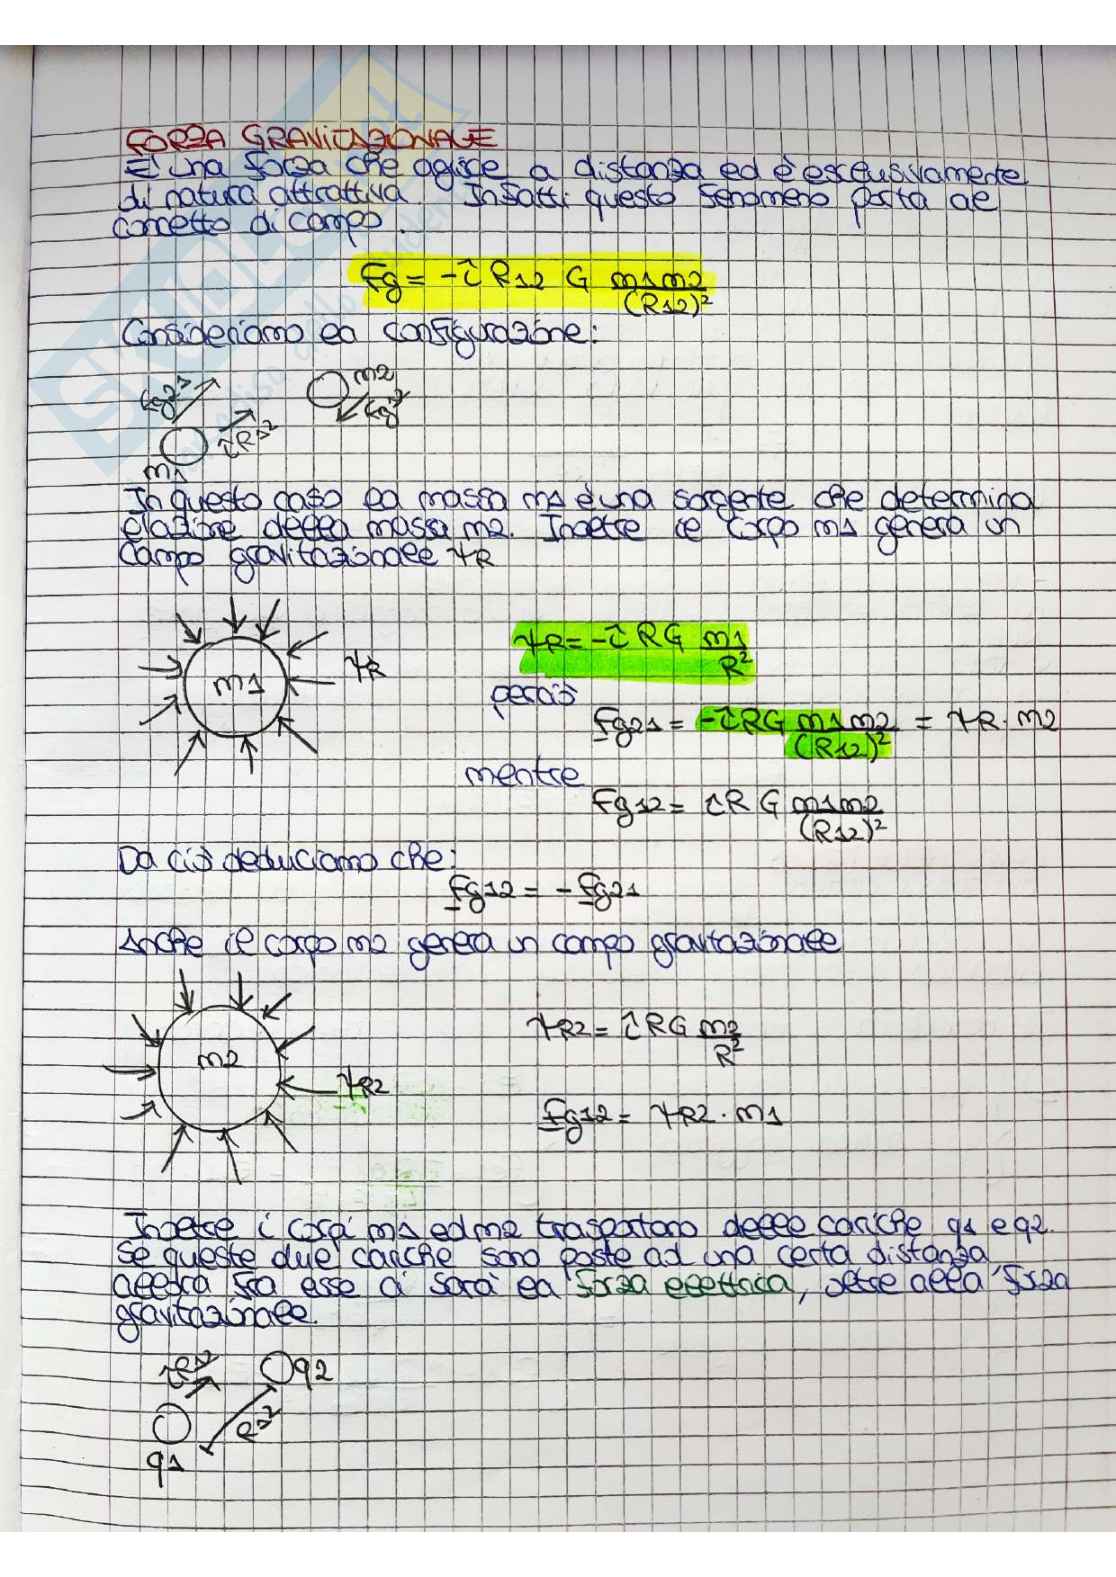 FORZA GRAVITAZIONALE
È una forza che agisce a distanza ed è esclusivamente
di natura attrattiva. Infatti questo fenomeno porta al
concetto di campo.
Fg = -î R12 G m1m2/(R12)²
Consideriamo la configurazione:
Fg21 m2 Fg12
îR12
m1
In questo caso la massa m1 è una sorgente che determina
l'azione della massa m2. Inoltre il corpo m1 genera un
campo gravitazionale ψR
m1 ψR
ψR = -î RG m1/R²
perciò
Fg21 = -îRG m1m2/(R12)² = ψR · m2
mentre
Fg12 = îR G m1m2/(R12)²
Da ciò deduciamo che:
Fg12 = -Fg21
Anche il corpo m2 genera un campo gravitazionale
m2 ψR2
ψR2 = îRG m2/R²
Fg12 = ψR2 · m1
Inoltre i corpi m1 ed m2 trasportano delle cariche q1 e q2.
Se queste due cariche sono poste ad una certa distanza
allora fra esse ci sarà la forza elettrica, oltre alla forza
gravitazionale.
îR12 q2
R12
q1